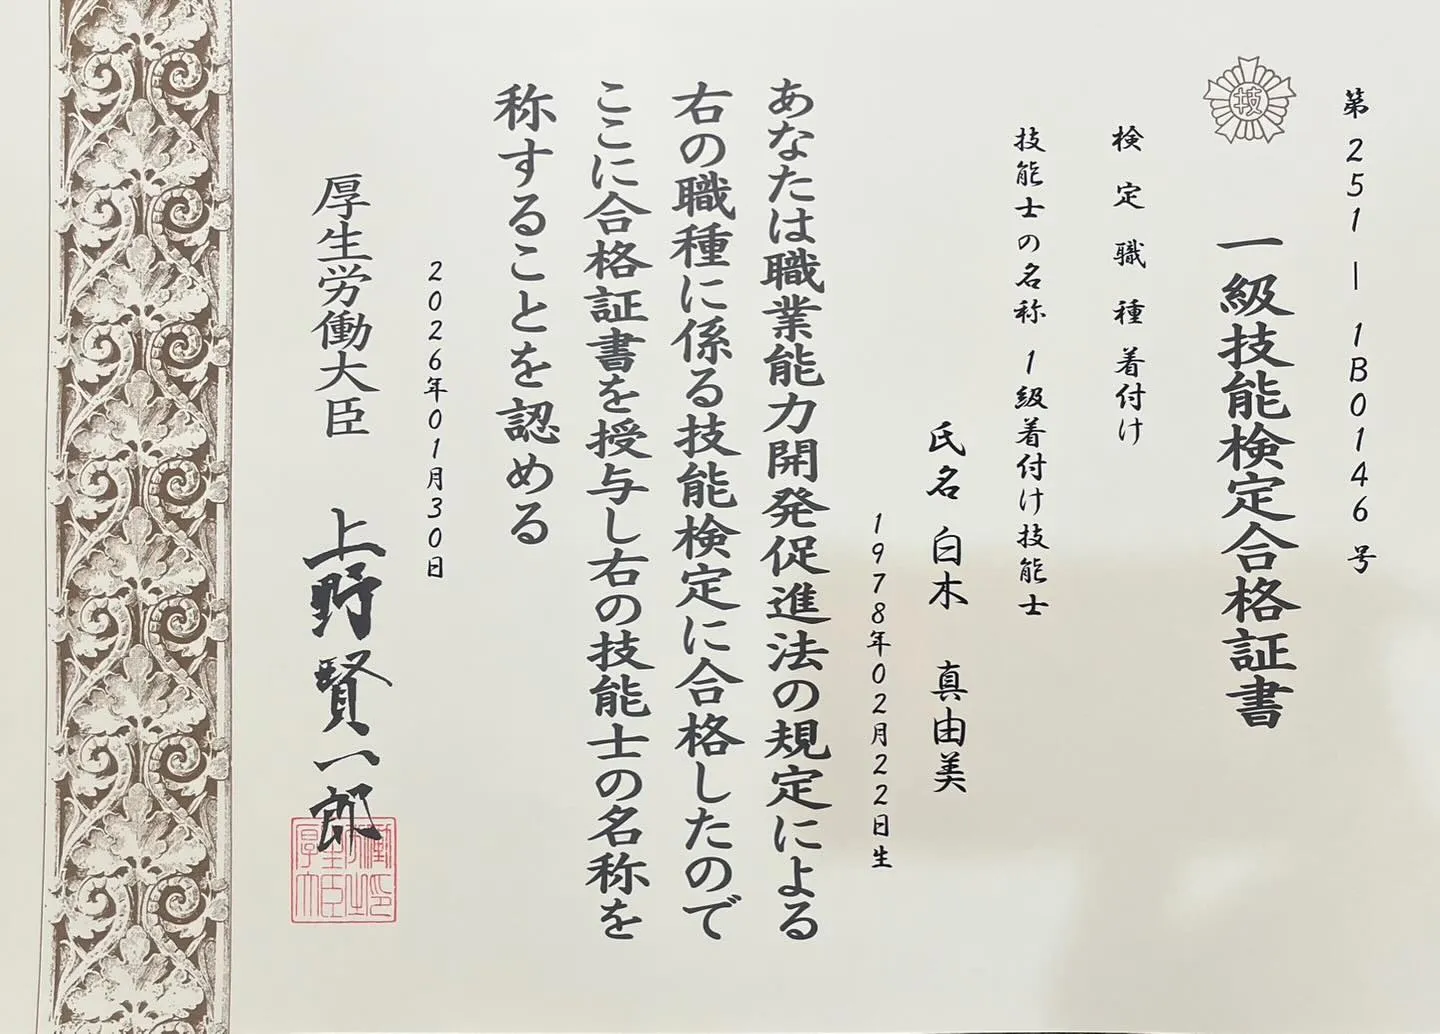 第251-1B0146号
技
一級技能検定合格証書
検定職種 着付け
技能士の名称 1級着付け技能士
氏名 白木 真由美
1978年02月22日生
あなたは職業能力開発促進法の規定による
右の職種に係る技能検定に合格したので
ここに合格証書を授与し右の技能士の名称を
称することを認める
2026年01月30日
厚生労働大臣 上野賢一郎